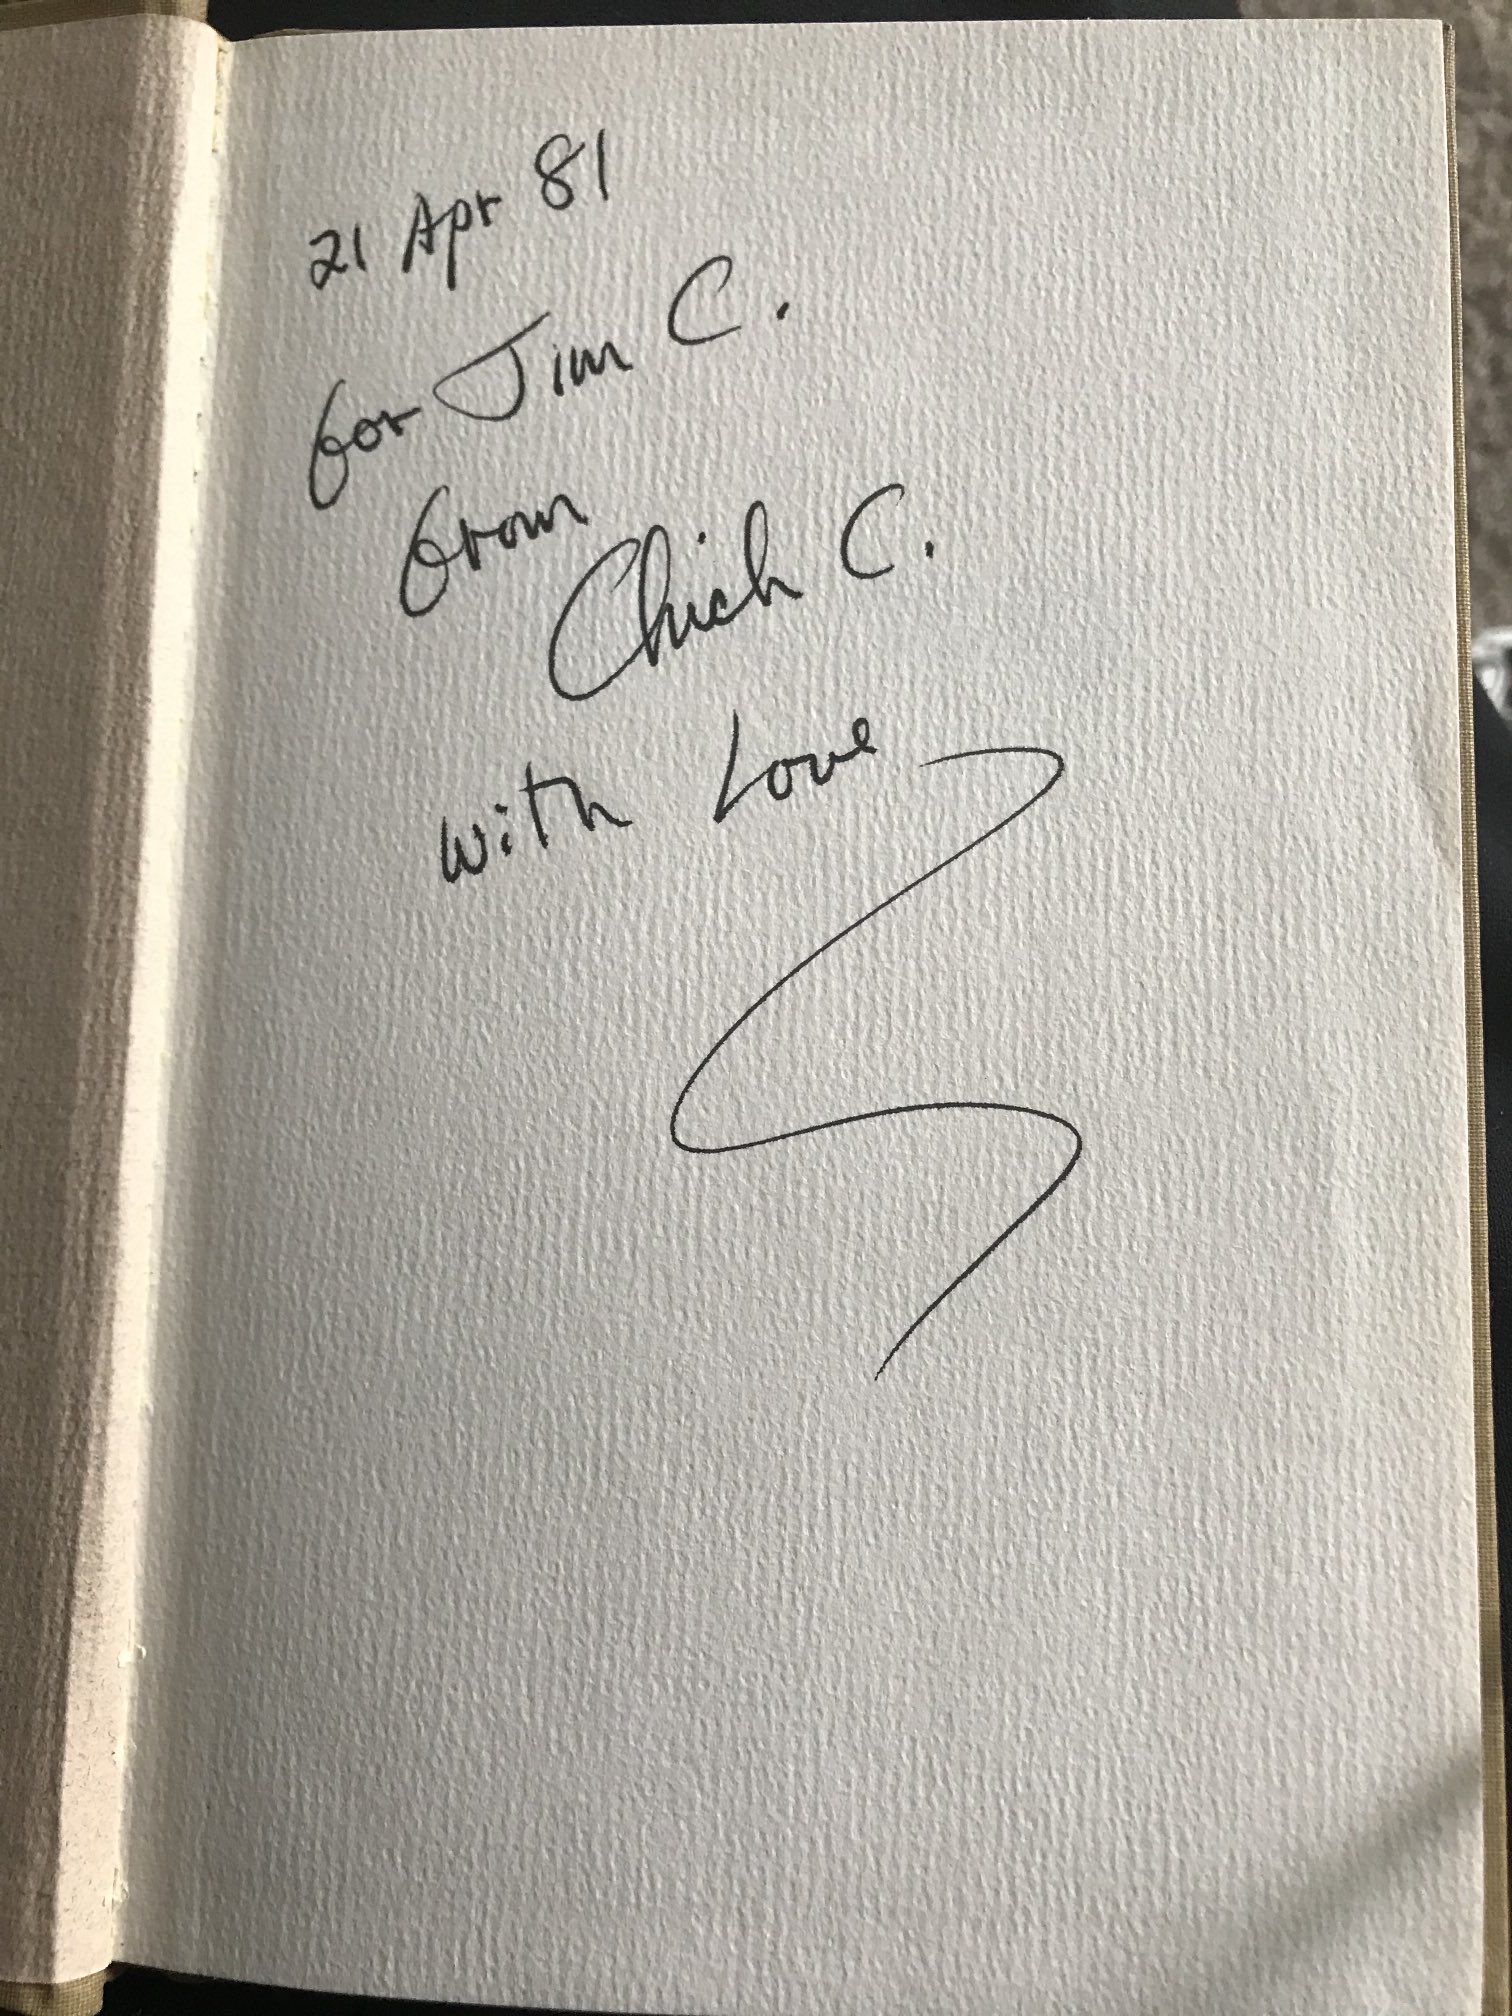 21 Apr 81
for Jim C.
from
Chich C.
with Love